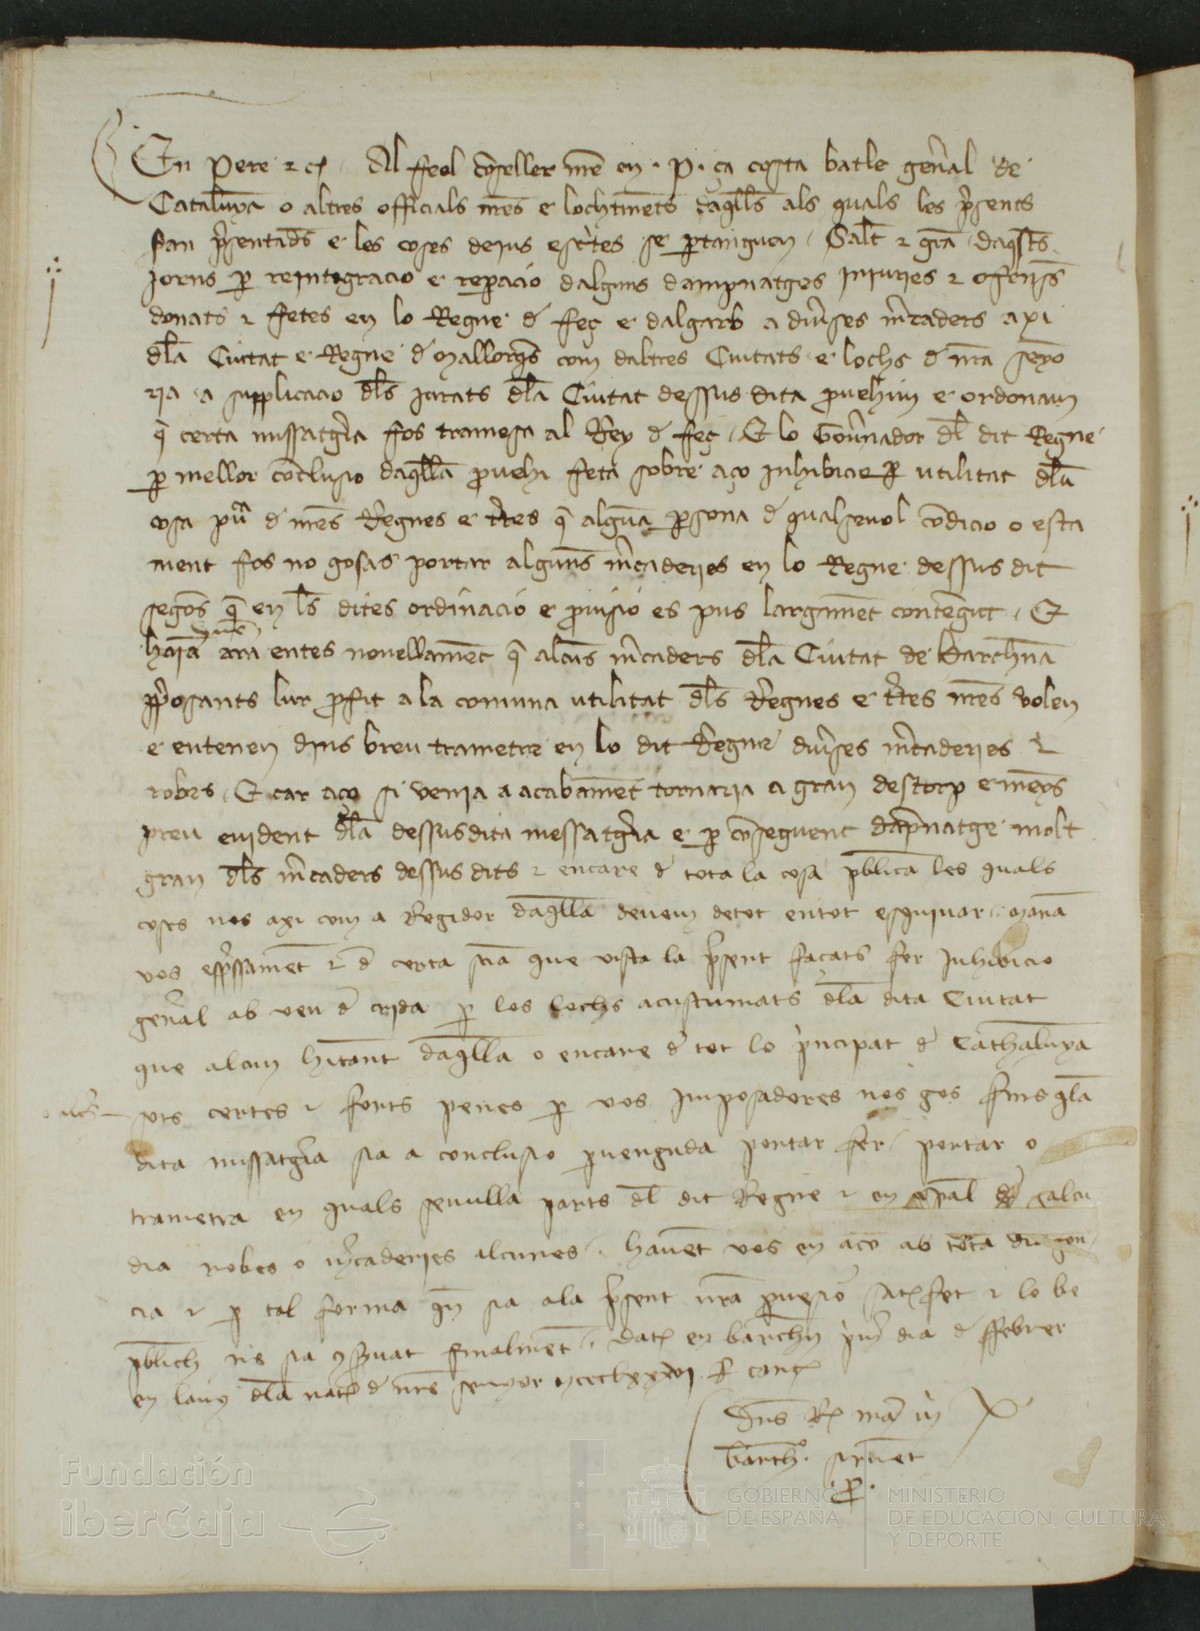 En Pere &c. Al feel conseller nre en .P. ça costa batle genal de
Cataluya o altres officials nres e lochtinents daqlls als quals les psents
san psentades e les coses dejus escrites se ptanguen Salt & gra daqsts
jorns p reintegracio e repacio dalguns dampnatges injuries & ofenses
donats & fetes en lo Regne de feç e dalgarb a diuses mcaders axi
dla Ciutat e Regne de Mallorqs com daltres Ciutats e lochs de nra senyo
ria a supplicacio dls jurats dla Ciutat dessus dita prouehim e ordonam
q certa missatgia fos tramesa al Rey de feç Et lo Gounador dl dit Regne
p mellor conclusio daqlla prouehi feta sobre aço inhibicio p utilitat dla
cosa pu de nres Regnes e tres q alguna psona de qualseuol condicio o esta
ment fos no gosas portar algunes mcaderies en lo Regne dessus dit
segons q en ls dites ordinacio e prouisio es pus largament contengut Et
haja ara entes nouellament q alcuns mcaders dla Ciutat de Barchna
pposants lur profit a la comuna utilitat dls Regnes e tres nres volen
e entenen dins breu trametre en lo dit Regne diuses mcaderies &
robes Et car aço si venia a acabament tornaria a gran destorp e menys
preu euident dla dessusdita messatgia e p conseguent dapnatge molt
gran dls mcaders dessus dits & encare de tota la cosa publica les quals
coses nos axi com a Regidor daqlla deuem de tot en tot esquiuar manam
vos espssament & de certa scia que vista la psent façats fer inhibicio
genal ab veu de crida p los lochs acustumats dla dita Ciutat
que alcun hitant daqlla o encare de tot lo pncipat de Cathaluya
sots certes & forts penes p vos imposadores nos gos fins qla
dita missatgia sia a conclusio puenguda portar fer portar o
trametra en quals seuulla parts dl dit Regne & en espal de calcu
dia robes o mcaderies alcunes hauent vos en aço ab tota diligen
cia & p tal forma q sia a la psent nra prouisio satisfet & lo be
publich ne sia cseruat finalment. Dat en barchn pm dia de ffebrer
en lany dla nat de nre senyor mccclxxxvi P canc
Dns Rex mand in
barchn. siruent
P.